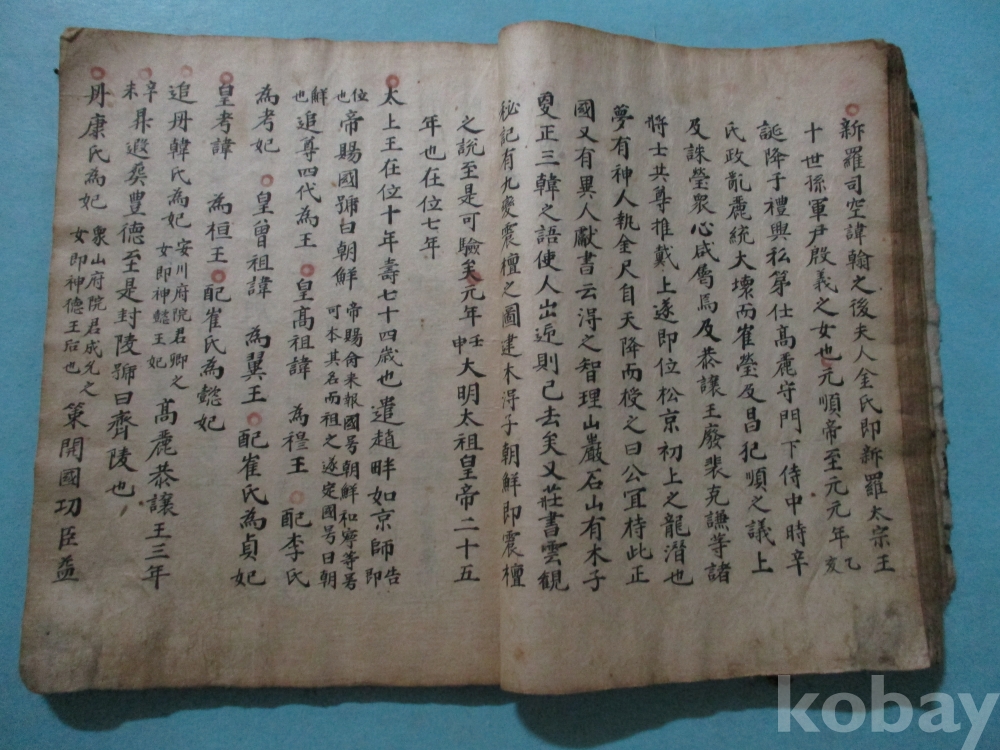 新羅司空諱翰之後夫人金氏即新羅太宗王
十世孫軍尹殷義之女也元順帝至元元年乙亥
誕降于禮興私第仕高麗守門下侍中時辛
氏政亂麗統大壞而崔瑩及昌犯順之議上
及誅瑩衆心咸屬焉及恭讓王廢裴克謙等諸
將士共尊推戴上遂即位松京初上之龍潛也
夢有神人執金尺自天降而授之曰公宜持此正
國又有異人獻書云得之智理山巖石山有木子
更正三韓之語使人出迎則已去矣又莊書雲觀
秘記有九變震檀之圖建木得子朝鮮即震檀
之說至是可驗矣元年壬申大明太祖皇帝二十五
年也在位七年
太上王在位十年壽七十四歲也遣趙胖如京師告即
位也帝賜國號曰朝鮮帝賜胥來報國号朝鮮和寧等号可本其名而祖之遂定國号曰朝
鮮也追尊四代為王皇高祖諱 為穆王 配李氏
為考妃 皇曾祖諱 為翼王 配崔氏為貞妃
皇考諱 為桓王 配崔氏為懿妃
追冊韓氏為妃安川府院君卿之女即神懿王妃 高麗恭讓王三年
辛未昇遐葬豐德至是封陵號曰齊陵也
冊康氏為妃象山府院君成允之女即神德王后也 策開國功臣益